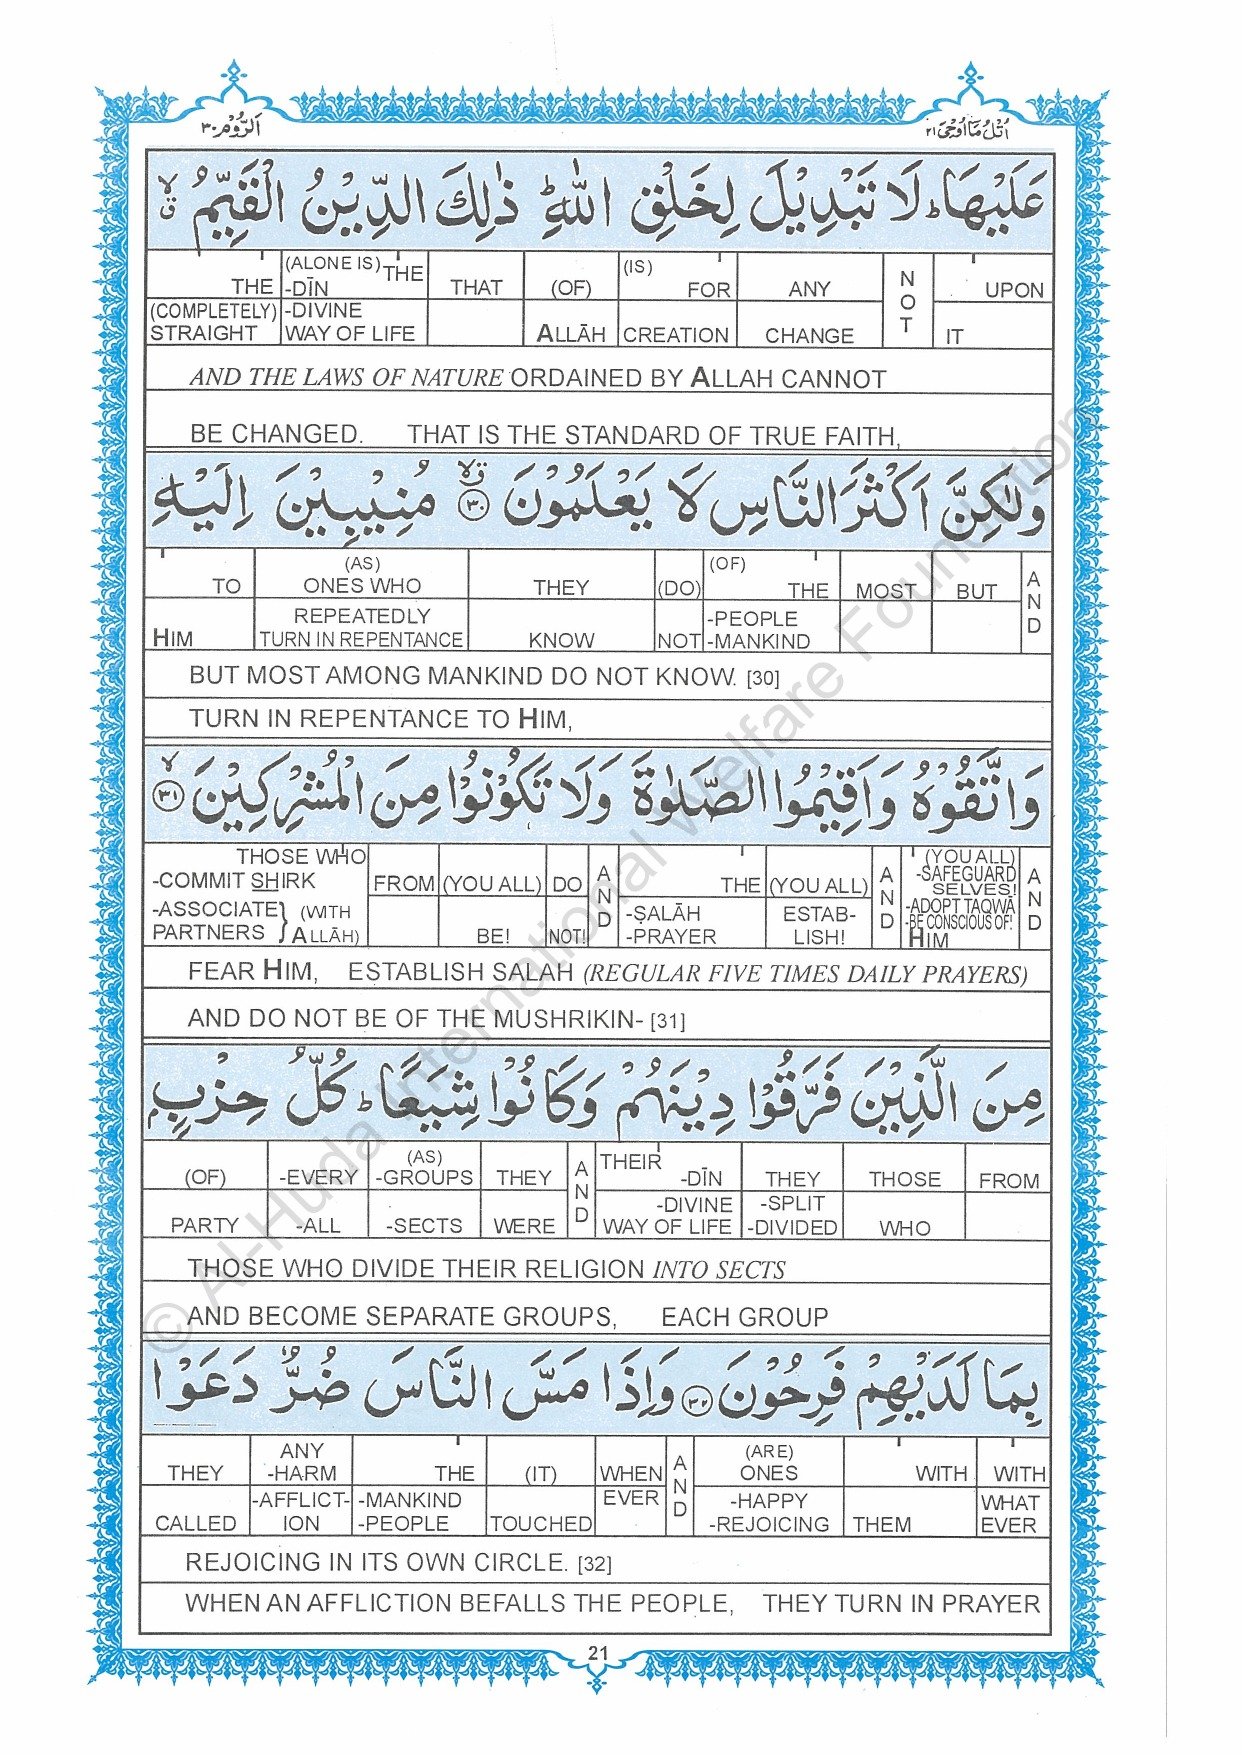 اُتْلُ مَا اُوْحِیَ ٢١
اَلرُّوْم ٣٠
عَلَيْهَا ؕ لَا تَبْدِيْلَ لِخَلْقِ اللّٰهِ ؕ ذٰلِكَ الدِّيْنُ الْقَيِّمُ ۙ ق
THE (ALONE IS) THE -DĪN THAT (OF) (IS) FOR ANY NOT UPON
(COMPLETELY) STRAIGHT -DIVINE WAY OF LIFE ALLĀH CREATION CHANGE IT
AND THE LAWS OF NATURE ORDAINED BY ALLAH CANNOT
BE CHANGED. THAT IS THE STANDARD OF TRUE FAITH,
وَلٰكِنَّ اَكْثَرَ النَّاسِ لَا يَعْلَمُوْنَ ۙ ق ﴿٣٠﴾ مُنِيْبِيْنَ اِلَيْهِ
TO (AS) ONES WHO THEY (DO) (OF) THE MOST BUT AND
HIM REPEATEDLY TURN IN REPENTANCE KNOW NOT -PEOPLE -MANKIND
BUT MOST AMONG MANKIND DO NOT KNOW. [30]
TURN IN REPENTANCE TO HIM,
وَاتَّقُوْهُ وَاَقِيْمُوا الصَّلٰوةَ وَلَا تَكُوْنُوْا مِنَ الْمُشْرِكِيْنَ ۙ ﴿٣١﴾
THOSE WHO -COMMIT SHIRK FROM (YOU ALL) DO AND THE (YOU ALL) AND (YOU ALL) -SAFEGUARD SELVES! AND
-ASSOCIATE PARTNERS } (WITH ALLĀH) BE! NOT! -ṢALĀH -PRAYER ESTAB-LISH! -ADOPT TAQWĀ -BE CONSCIOUS OF! HIM
FEAR HIM, ESTABLISH SALAH (REGULAR FIVE TIMES DAILY PRAYERS)
AND DO NOT BE OF THE MUSHRIKIN- [31]
مِنَ الَّذِيْنَ فَرَّقُوْا دِيْنَهُمْ وَكَانُوْا شِيَعًا ؕ كُلُّ حِزْبٍۭ
(OF) -EVERY (AS) -GROUPS THEY AND THEIR -DĪN THEY THOSE FROM
PARTY -ALL -SECTS WERE -DIVINE WAY OF LIFE -SPLIT -DIVIDED WHO
THOSE WHO DIVIDE THEIR RELIGION INTO SECTS
AND BECOME SEPARATE GROUPS, EACH GROUP
بِمَا لَدَيْهِمْ فَرِحُوْنَ ﴿٣٢﴾ وَاِذَا مَسَّ النَّاسَ ضُرٌّ دَعَوْا
THEY ANY -HARM THE (IT) WHEN AND (ARE) ONES WITH WITH
CALLED -AFFLICT-ION -MANKIND -PEOPLE TOUCHED EVER -HAPPY -REJOICING THEM WHAT EVER
REJOICING IN ITS OWN CIRCLE. [32]
WHEN AN AFFLICTION BEFALLS THE PEOPLE, THEY TURN IN PRAYER
21
© Al-Huda International Welfare Foundation